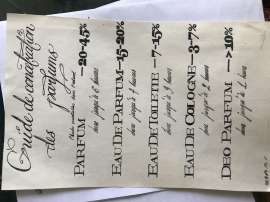 Guide de concentration
des parfums
PARFUM —20-45%
dure jusqu'à 8 heures
EAU DE PARFUM —15-20%
dure jusqu'à 4 heures
EAU DE TOILETTE —7-15%
dure jusqu'à 3 heures
EAU DE COLOGNE —3-7%
dure jusqu'à 2 heures
DEO PARFUM —>10%
dure jusqu'à 1 heure